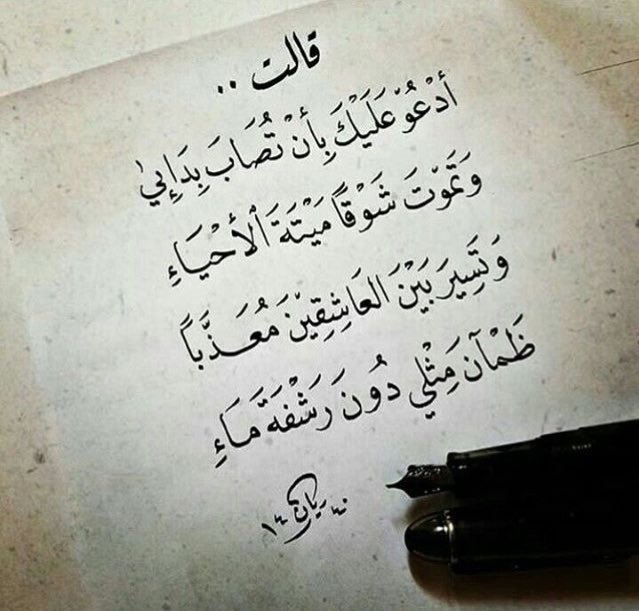 قالت ..
أَدْعُو عَلَيْكَ بِأَنْ تُصَابَ بِدَائِي
وَتَمُوتَ شَوْقًا مَيْتَةَ الأَحْيَاءِ
وَتَسِيرَ بَيْنَ العَاشِقِيْنَ مُعَذَّبًا
ظَمْآنَ مِثْلِي دُونَ رَشْفَةَ مَاءِ